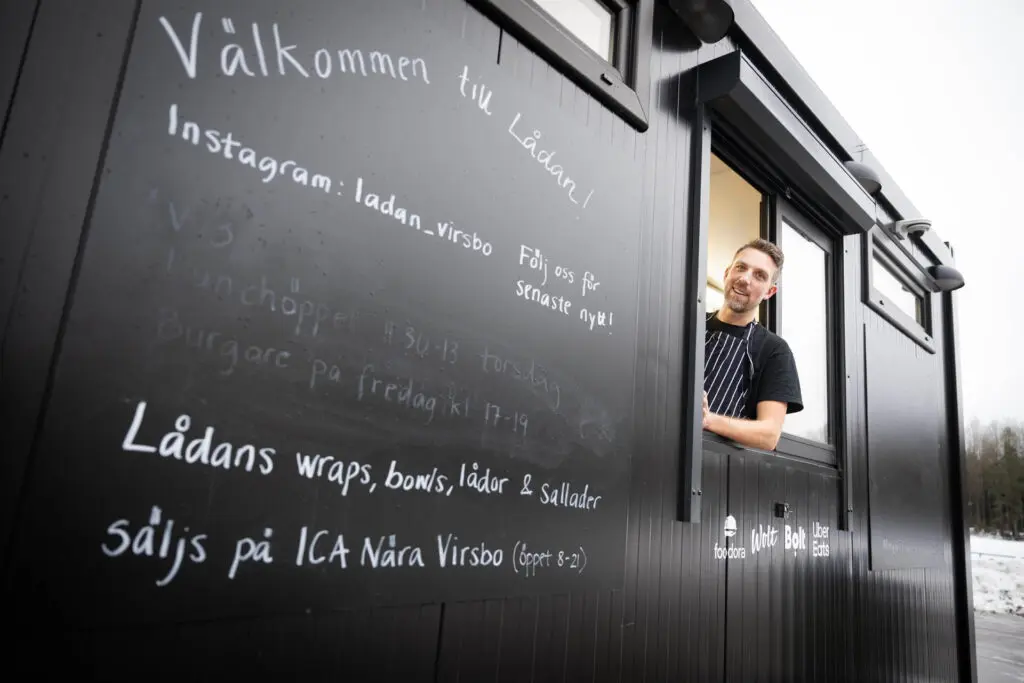 Välkommen till Lådan!
Instagram: ladan_virsbo
Följ oss för
senaste nytt!
V 3
Lunchöppet 30-13 torsdag
Burgare på fredag kl 17-19
Lådans wraps, bowls, lådor & sallader
säljs på ICA Nära Virsbo (öppet 8-21)
foodora Wolt Bolt Uber
Eats